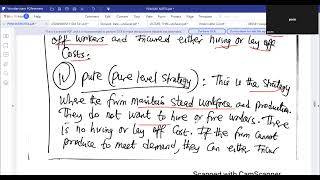 off workers and incured either hiring or lay off
Costs:
pure (pure level strategy): This is the strategy
Where the firm maintain stead workforce and production.
They do not want to hire or fire workers. There
is no hiring or lay off Cost. If the firm cannot
produce to meet demand, they can either incur
Scanned with CamScanner